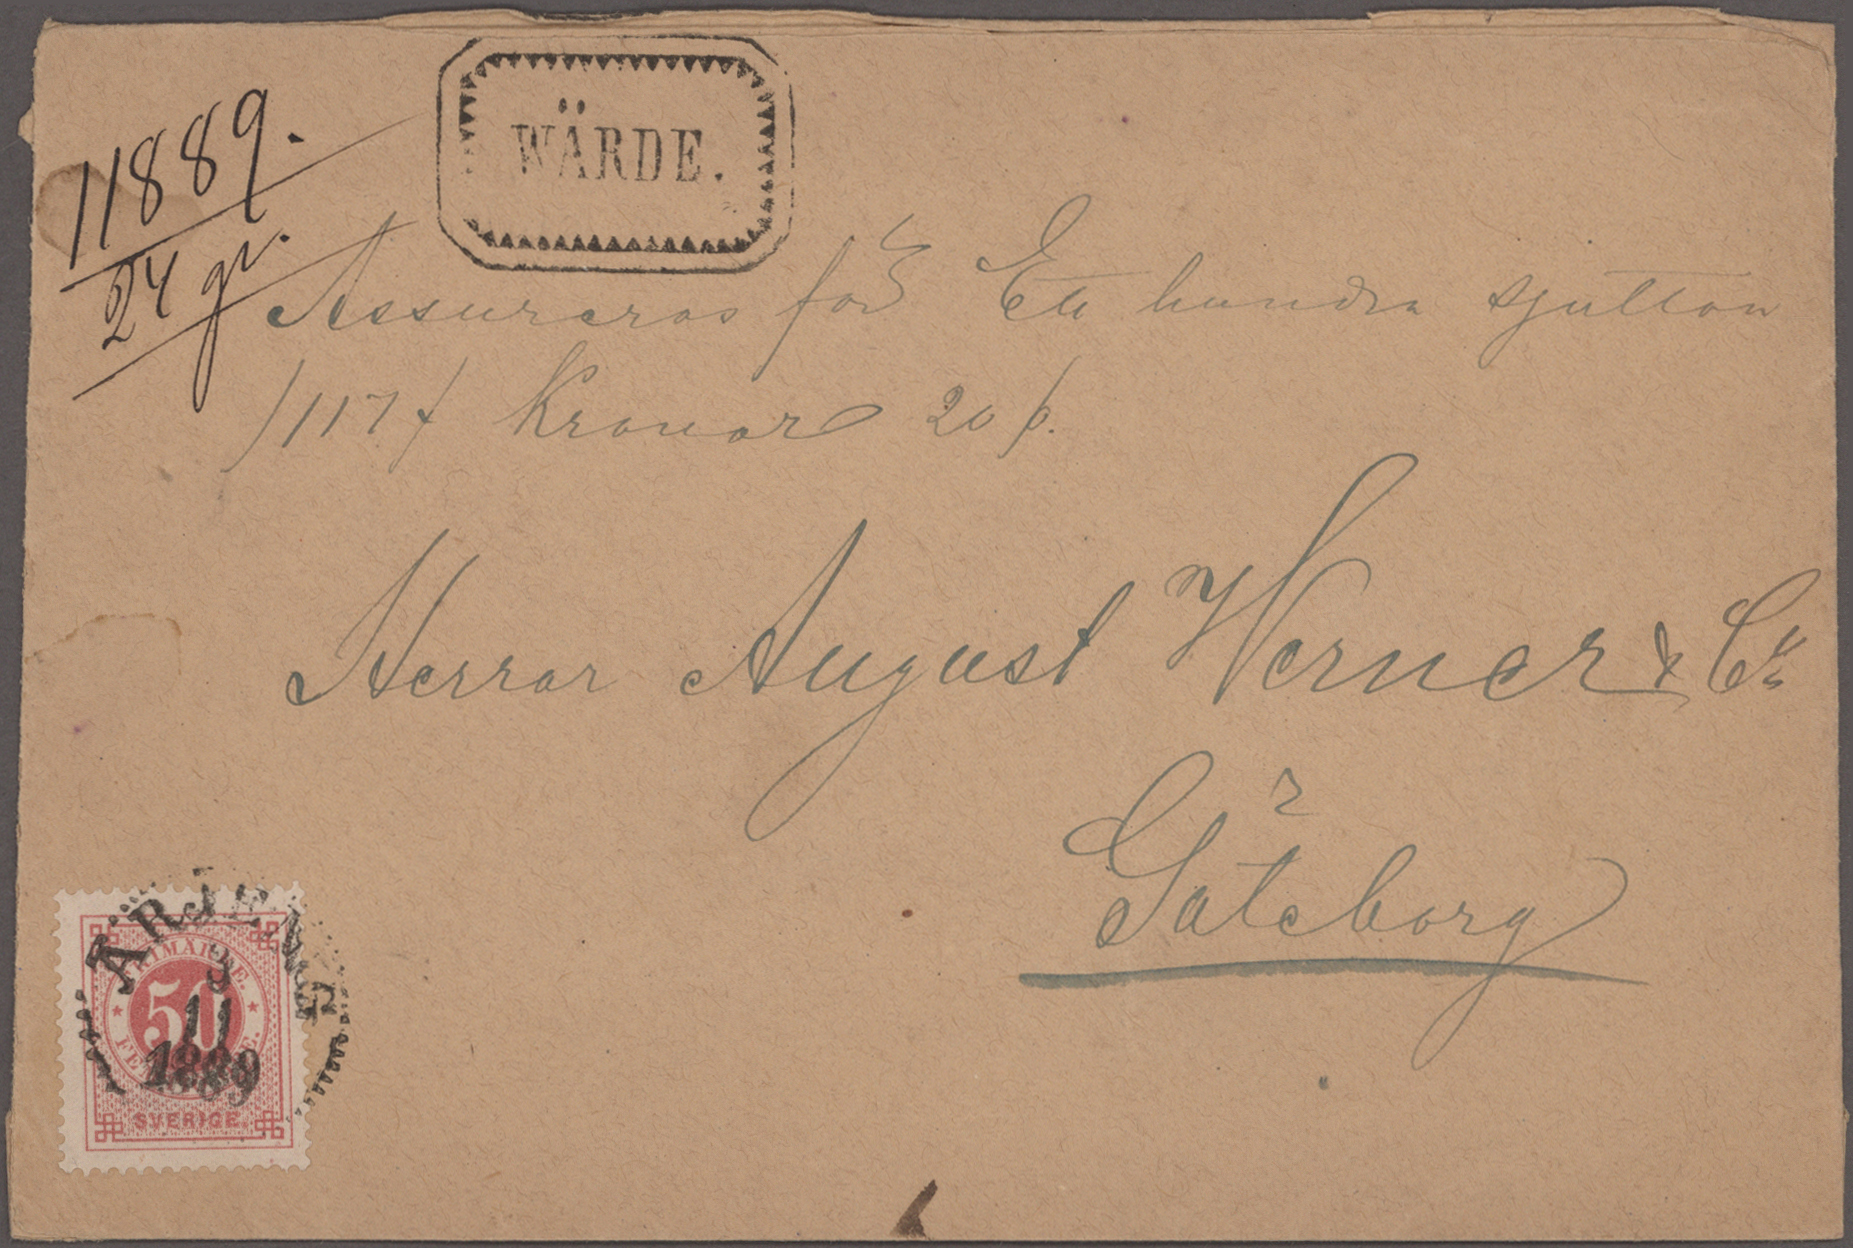 WÄRDE.
11889.
24 gr.
Assureras för Ett hundra sjutton
/117/ Kronor 20 ö.
Herrar August Werner & Co
Göteborg
ÅRJENG
3
11
1889
FRIMÄRKE.
50
SVERIGE.